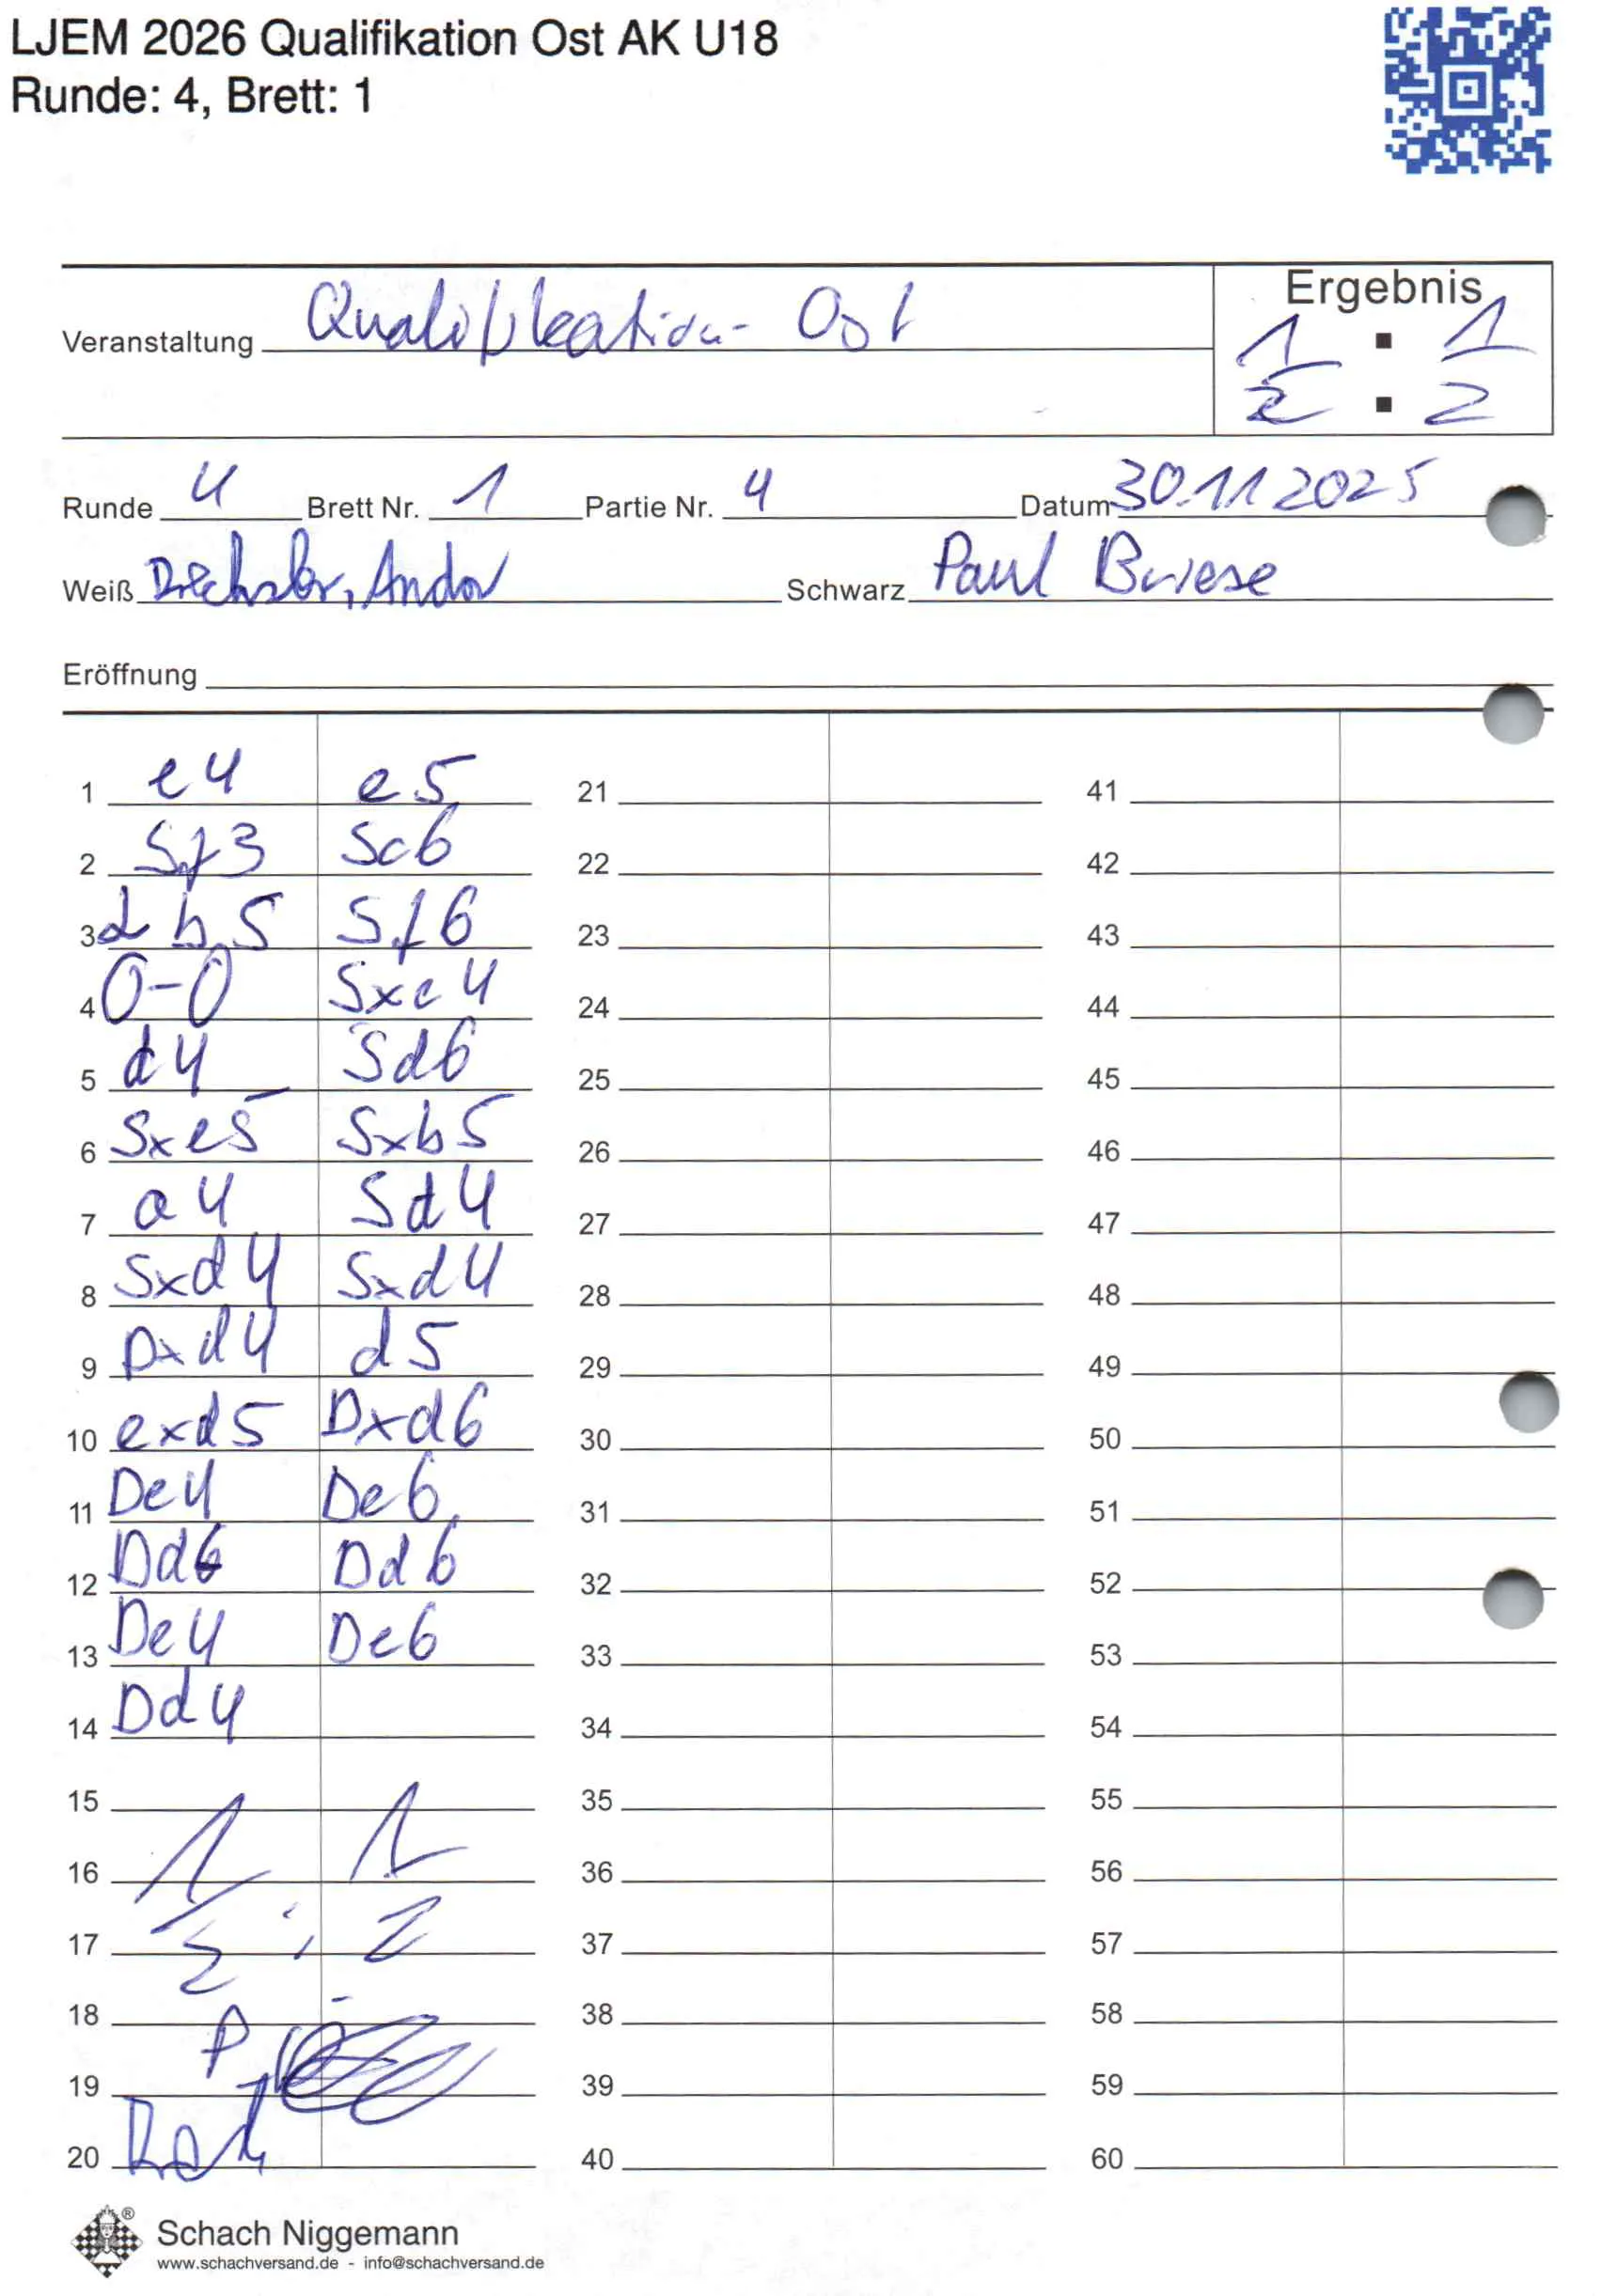 LJEM 2026 Qualifikation Ost AK U18
Runde: 4, Brett: 1
Ergebnis
Veranstaltung Qualifikation Ost
1/2 : 1/2
Runde 4 Brett Nr. 1 Partie Nr. 4 Datum 30.11.2025
Weiß Drechsler, Andor Schwarz Paul Briese
Eröffnung
1 e4 e5 21 41
2 Sf3 Sc6 22 42
3 Lb5 Sf6 23 43
4 0-0 Sxe4 24 44
5 d4 Sd6 25 45
6 Sxe5 Sxb5 26 46
7 a4 Sd4 27 47
8 Sxd4 Sxd4 28 48
9 Dxd4 d5 29 49
10 exd5 Dxd6 30 50
11 De4 De6 31 51
12 Dd6 Dd6 32 52
13 De4 De6 33 53
14 Dd4 34 54
15 35 55
16 1 1 36 56
17 2 : 2 37 57
18 38 58
19 39 59
20 40 60
Schach Niggemann
www.schachversand.de - info@schachversand.de